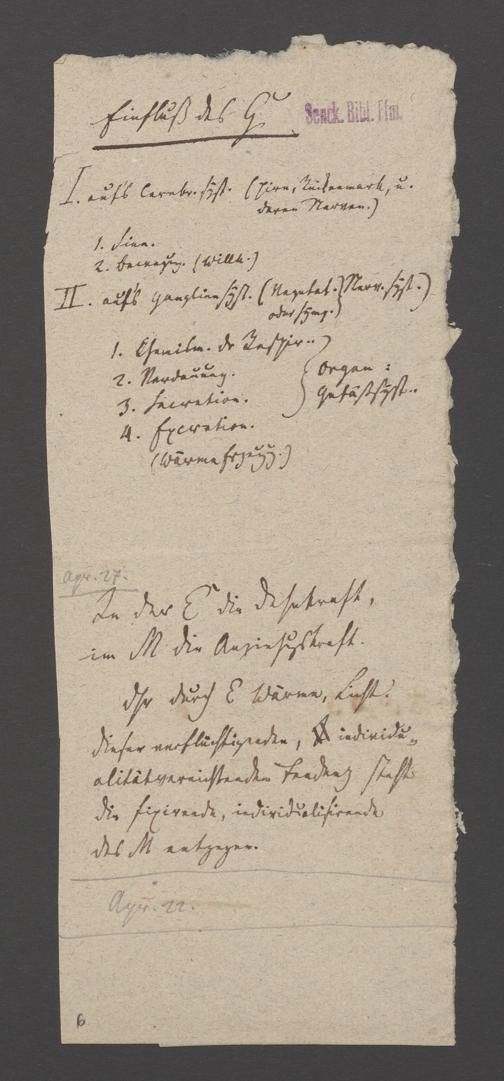 Einfluß des G
Senck. Bibl. Ffm.
I. aufs Cerebr. Syst. (Hirn, Rückenmark, u.
deren Nerven.)
1. Sinn.
2. Bewegg. (Willk.)
II. aufs Gangliensyst. (Vegetat. Nerv. Syst.)
oder symp.)
1. Chemism. der Respir.
2. Verdauung.
3. Secretion.
4. Excretion.
(Wärme Erzeugg.)
Organ:
Gefäßsyst.
Apr. 27.
In der E die Dehnkraft,
im M die Anziehungskraft.
Dhr durch E Wärme, Licht.
Dieser verflüchtigenden, individu-
alitätvernichtenden Tendenz steht
die fixirende, individualisirende
des M entgegen.
Apr. 22.
6